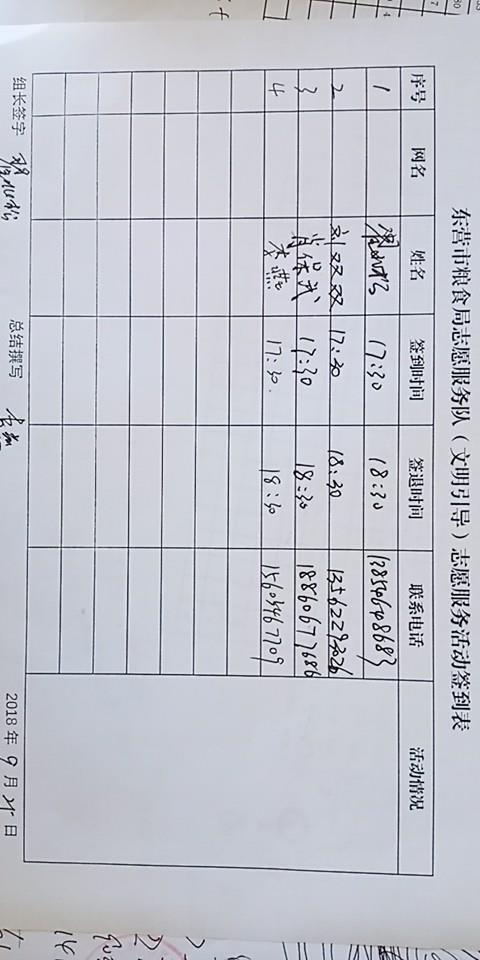 东营市粮食局志愿服务队（文明引导）志愿服务活动签到表
序号 网名 姓名 签到时间 签退时间 联系电话 活动情况
1 17:30 18:30 13854640868
2 刘双双 17:30 18:30 13562293026
3 肖保武 17:30 18:30 18860677686
4 李燕 17:30. 18:30 15603467709
组长签字 总结撰写 李燕 2018年9月25日